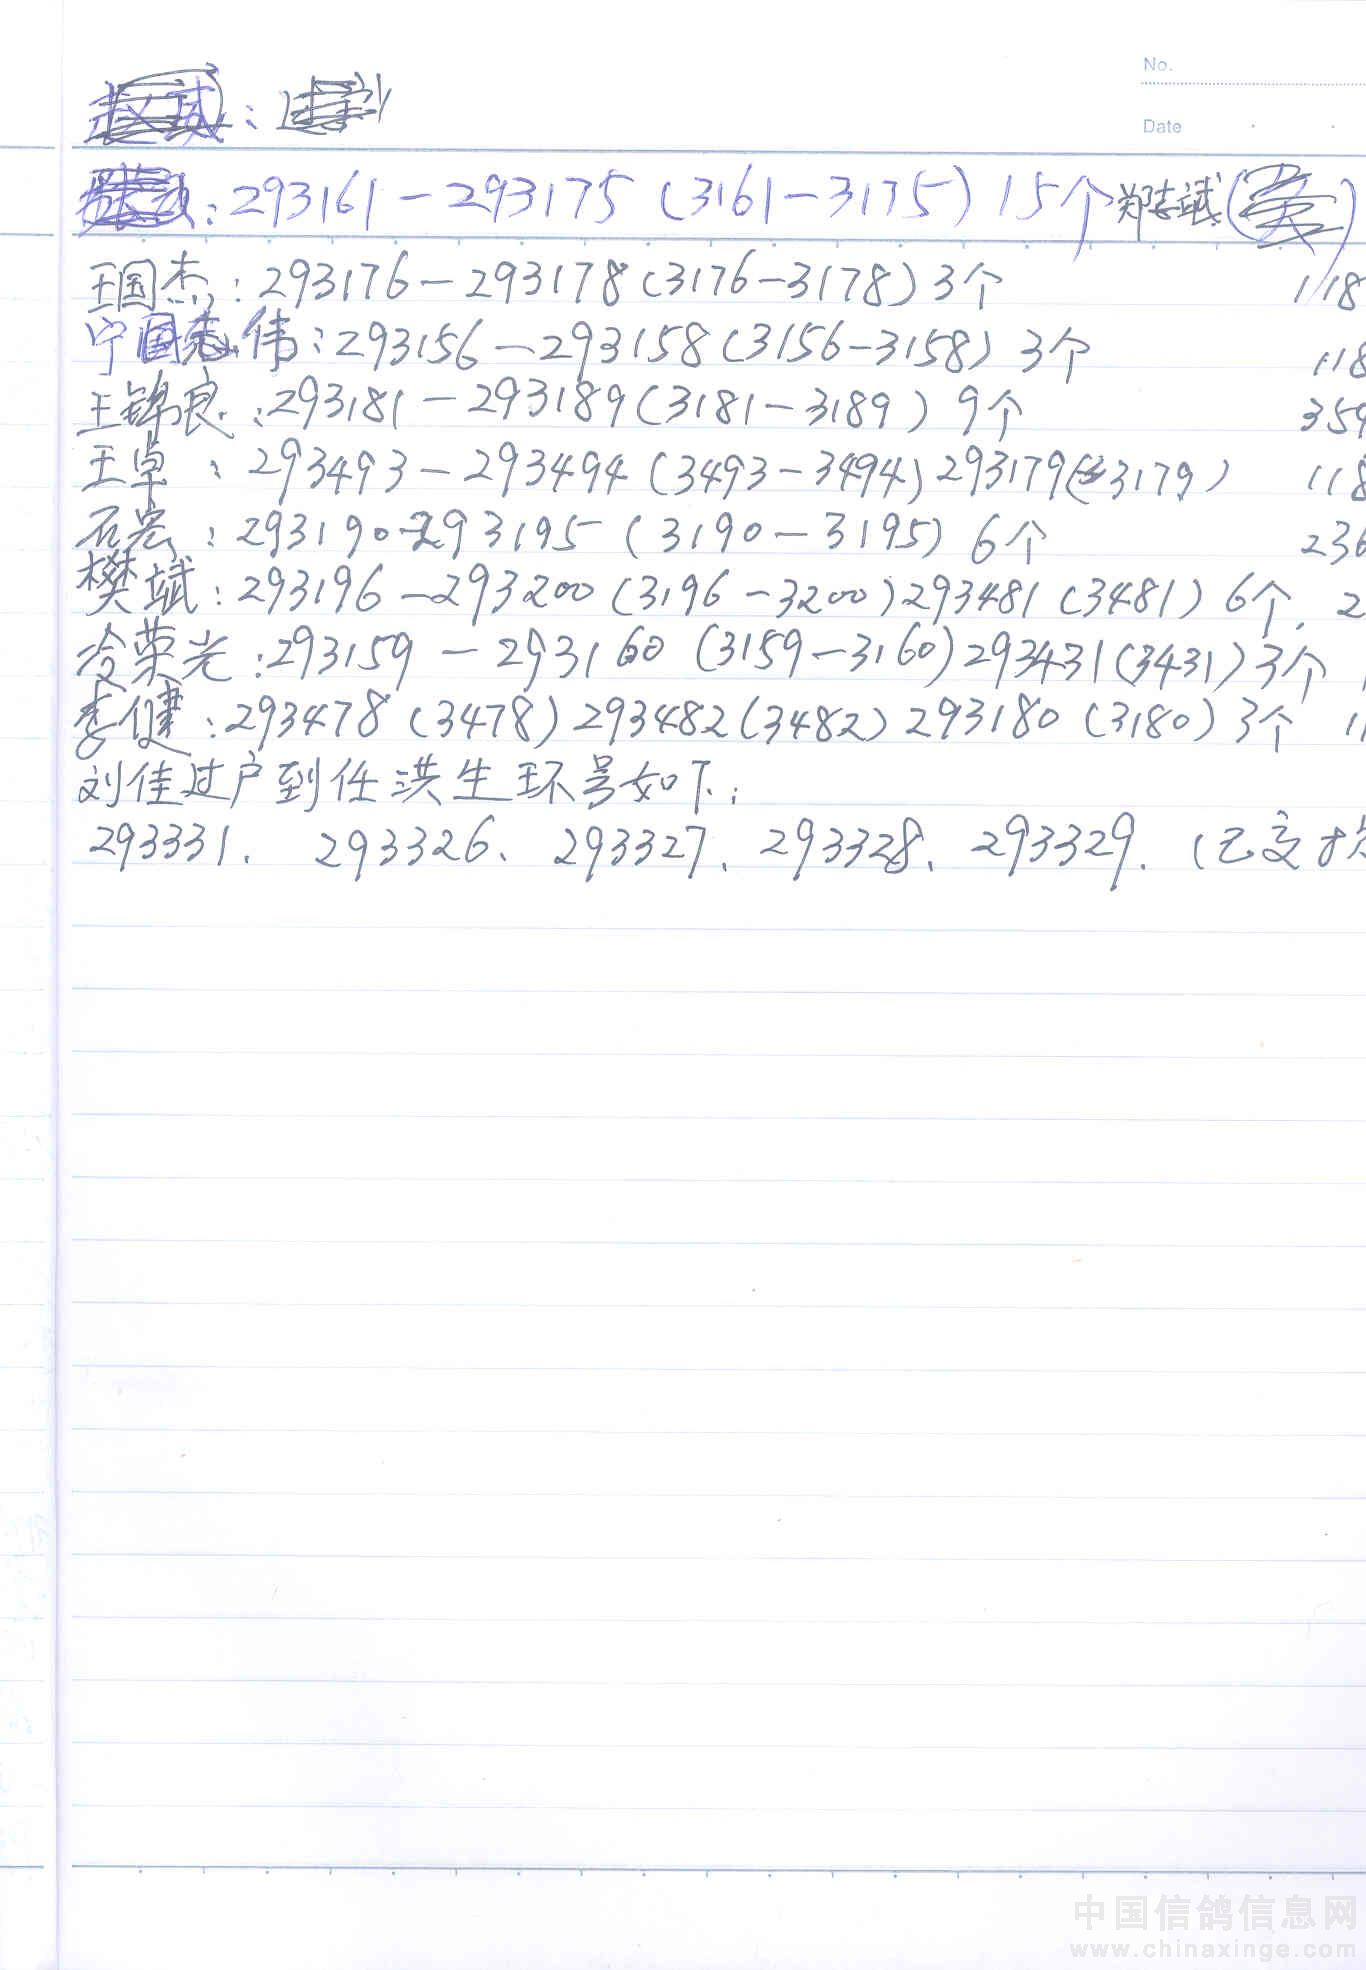 No.
Date
：293161－293175（3161－3175）15个 郑志斌
王国杰：293176－293178（3176－3178）3个 118
宁伟：293156－293158（3156－3158）3个 118
王锦良：293181－293189（3181－3189）9个 359
王卓：293493－293494（3493－3494）293179（3179） 118
石宏：293190－293195（3190－3195）6个 236
樊斌：293196－293200（3196－3200）293481（3481）6个. 2
冷荣光：293159－293160（3159－3160）293431（3431）3个
李健：293478（3478）293482（3482）293180（3180）3个 11
刘佳过户到任洪生环号如下：
293331、293326、293327、293328、293329.（已交
中国信鸽信息网
www.chinaxinge.com